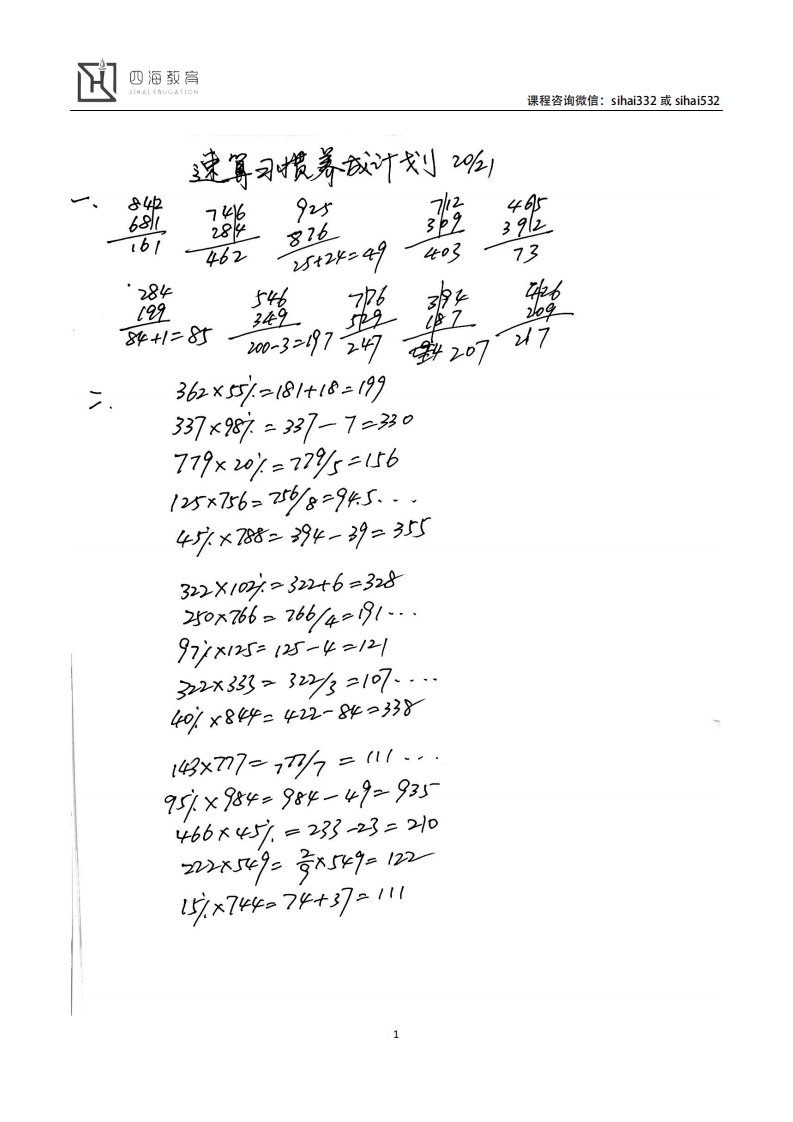 四海教育
SIHAI EDUCATION
课程咨询微信：sihai332 或 sihai532
速算习惯养成计划 20/21
一、
842 746 925 712 465
681 284 876 309 392
161 462 25+24=49 403 73
284 546 776 394 426
199 349 529 187 209
84+1=85 200-3=197 247 207 217
二.
362×55%=181+18=199
337×98%=337-7=330
779×20%=779/5=156
125×756=756/8=94.5...
45%×788=394-39=355
322×102%=322+6=328
250×766=766/4=191...
97%×125=125-4=121
322×333=322/3=107....
40%×844=422-84=338
143×777=777/7=111...
95%×984=984-49=935
466×45%=233-23=210
222×549=2/9×549=122
15%×744=74+37=111
1